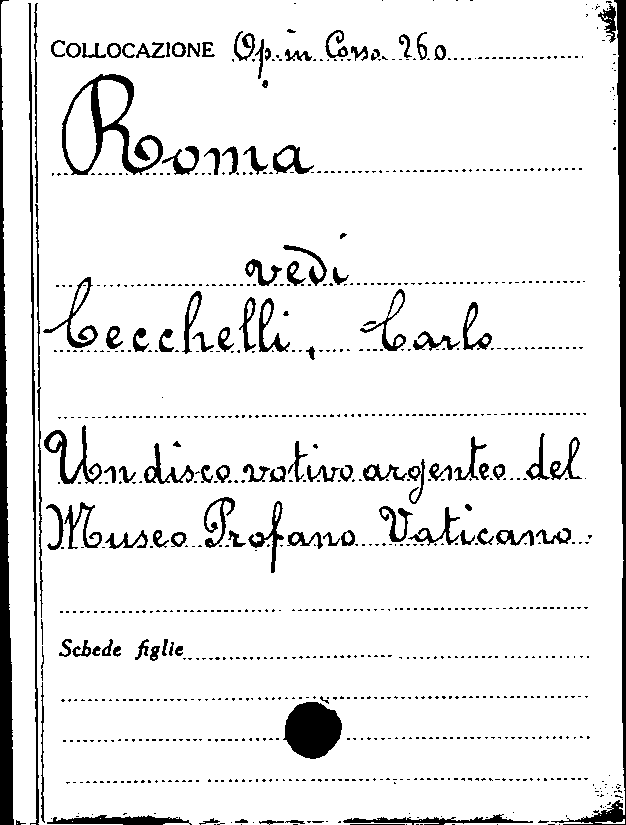 COLLOCAZIONE Op. in Corso. 260
Roma
vedi
Cecchelli, Carlo
Un disco votivo argenteo del
Museo Profano Vaticano.
Schede figlie